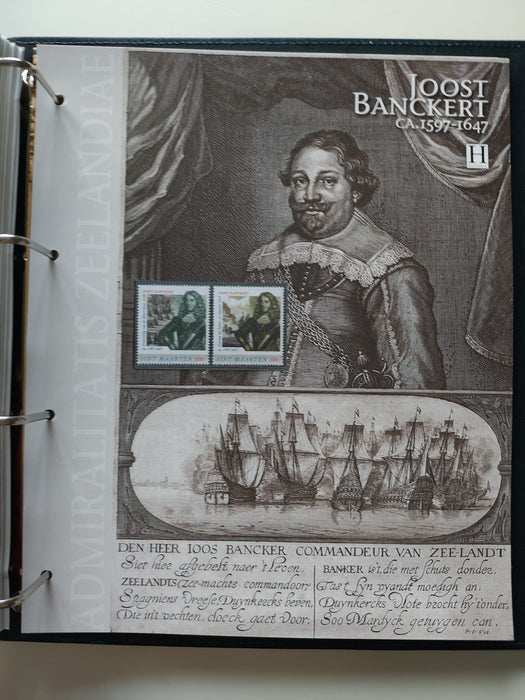 JOOST
BANCKERT
CA.1597-1647
H
ADMIRALITALIS ZEELANDIAE
SINT MAARTEN
SINT MAARTEN
DEN HEER IOOS BANCKER COMMANDEUR VAN ZEE-LANDT
Siet hier afgebelt naer 't leven,
ZEELANDTS zee-machts commandoor,
Spagniens vreese, Duynkercks beven,
Die in't vechten, cloeck gaet voor.
BANKER ist, die met schuts donder
Tast syn vyandt moedigh an,
Duynkercks Vlote bezocht hy t'onder,
Soo Mardyck getuygen can.